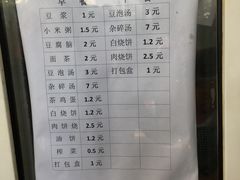 豆浆 1元 豆泡汤 3元
小米粥 1.5元 杂碎汤 7元
豆腐脑 2元 白烧饼 1.2元
面茶 2元 肉烧饼 2.5元
豆泡汤 3元 打包盒 1元
杂碎汤 7元
茶鸡蛋 1.2元
白烧饼 1.2元
肉饼烧 2.5元
油饼 1.2元
榨菜 0.5元
打包盒 1元